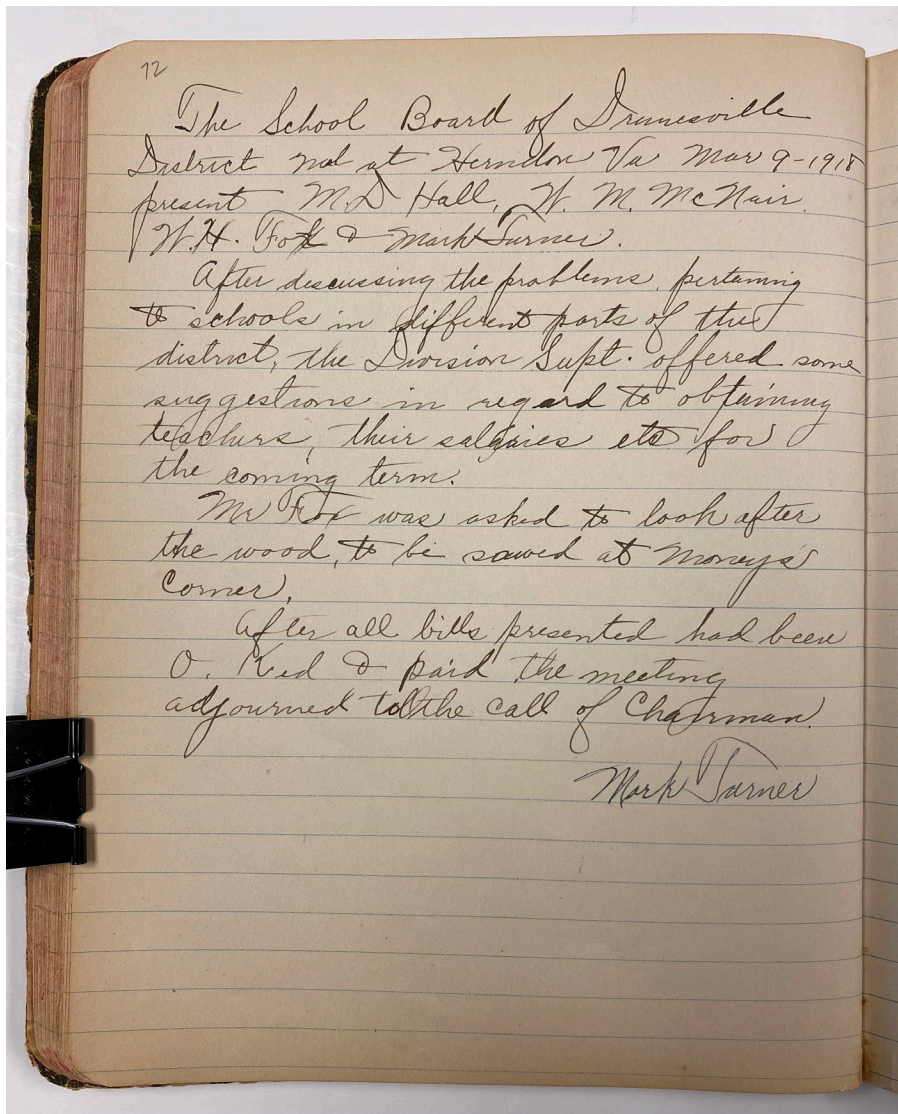 72
The School Board of Dranesville
District met at Herndon Va Mar 9-1918
present M.D Hall, W. M. McNair.
W.H. Fox & Mark Turner.
After discussing the problems, pertaining
to schools in different parts of the
district, the Division Supt. offered some
suggestions in regard to obtaining
teachers, their salaries etc for
the coming term.
Mr Fox was asked to look after
the wood, to be sawed at Moneys
Corner.
After all bills presented had been
O. Ked & paid the meeting
adjourned to the call of Chairman.
Mark Turner